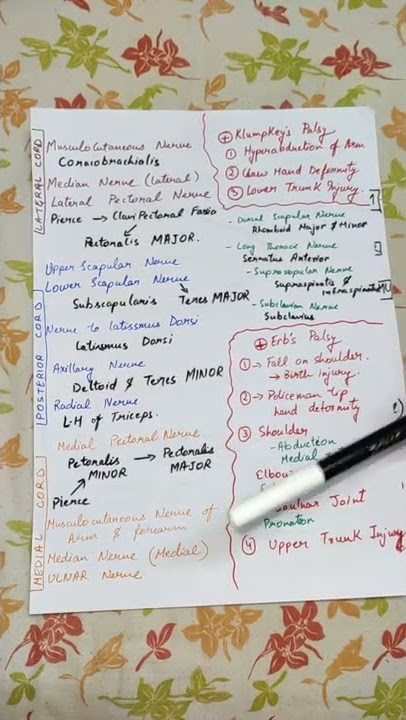 LATERAL CORD
Musculocutaneous Nerve
Coracobrachialis
Median Nerve (lateral)
Lateral Pectoral Nerve
Pierce → Clavi Pectoral Fascia
Pectoralis MAJOR.
POSTERIOR CORD
Upper Scapular Nerve
Lower Scapular Nerve
Subscapularis Teres MAJOR
Nerve to latissmus Dorsi
Latissmus Dorsi
Axillary Nerve
Deltoid & Teres MINOR
Radial Nerve
L-H of Triceps.
MEDIAL CORD
Medial Pectoral Nerve
Pectoralis MINOR → Pectoralis MAJOR
Pierce
Musculocutaneous Nerve of
Arm & forearm
Median Nerve (Medial)
ULNAR Nerve
Klumpkey's Palsy
① Hyperabduction of Arm
② Claw Hand Deformity
③ Lower Trunk Injury.
- Dorsal Scapular Nerve
Rhomboid Major & Minor
- Long Thoracic Nerve
Serratus Anterior
- Suprascapular Nerve
Supraspinatis &
Infraspinatis
- Subclavian Nerve
Subclavius
Erb's Palsy
① → Fall on shoulder.
→ Birth injury.
② → Policeman tip
hand deformity
③ Shoulder
- Abduction
Medial
Elbow
Joint
Pronator
④ Upper Trunk Injury